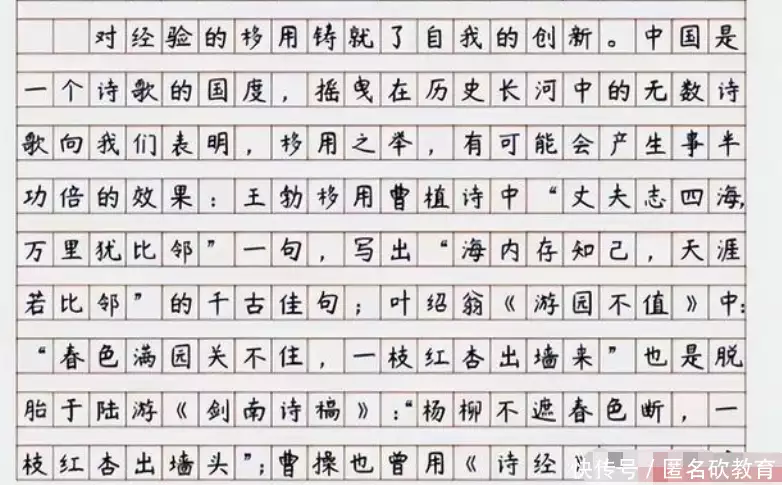 对经验的移用铸就了自我的创新。中国是
一个诗歌的国度，摇曳在历史长河中的无数诗
歌向我们表明，移用之举，有可能会产生事半
功倍的效果：王勃移用曹植诗中“丈夫志四海，
万里犹比邻”一句，写出“海内存知己，天涯
若比邻”的千古佳句；叶绍翁《游园不值》中：
“春色满园关不住，一枝红杏出墙来”也是脱
胎于陆游《剑南诗稿》：“杨柳不遮春色断，一
枝红杏出墙头”；曹操也曾用《诗经》
快传号／匿名砍教育